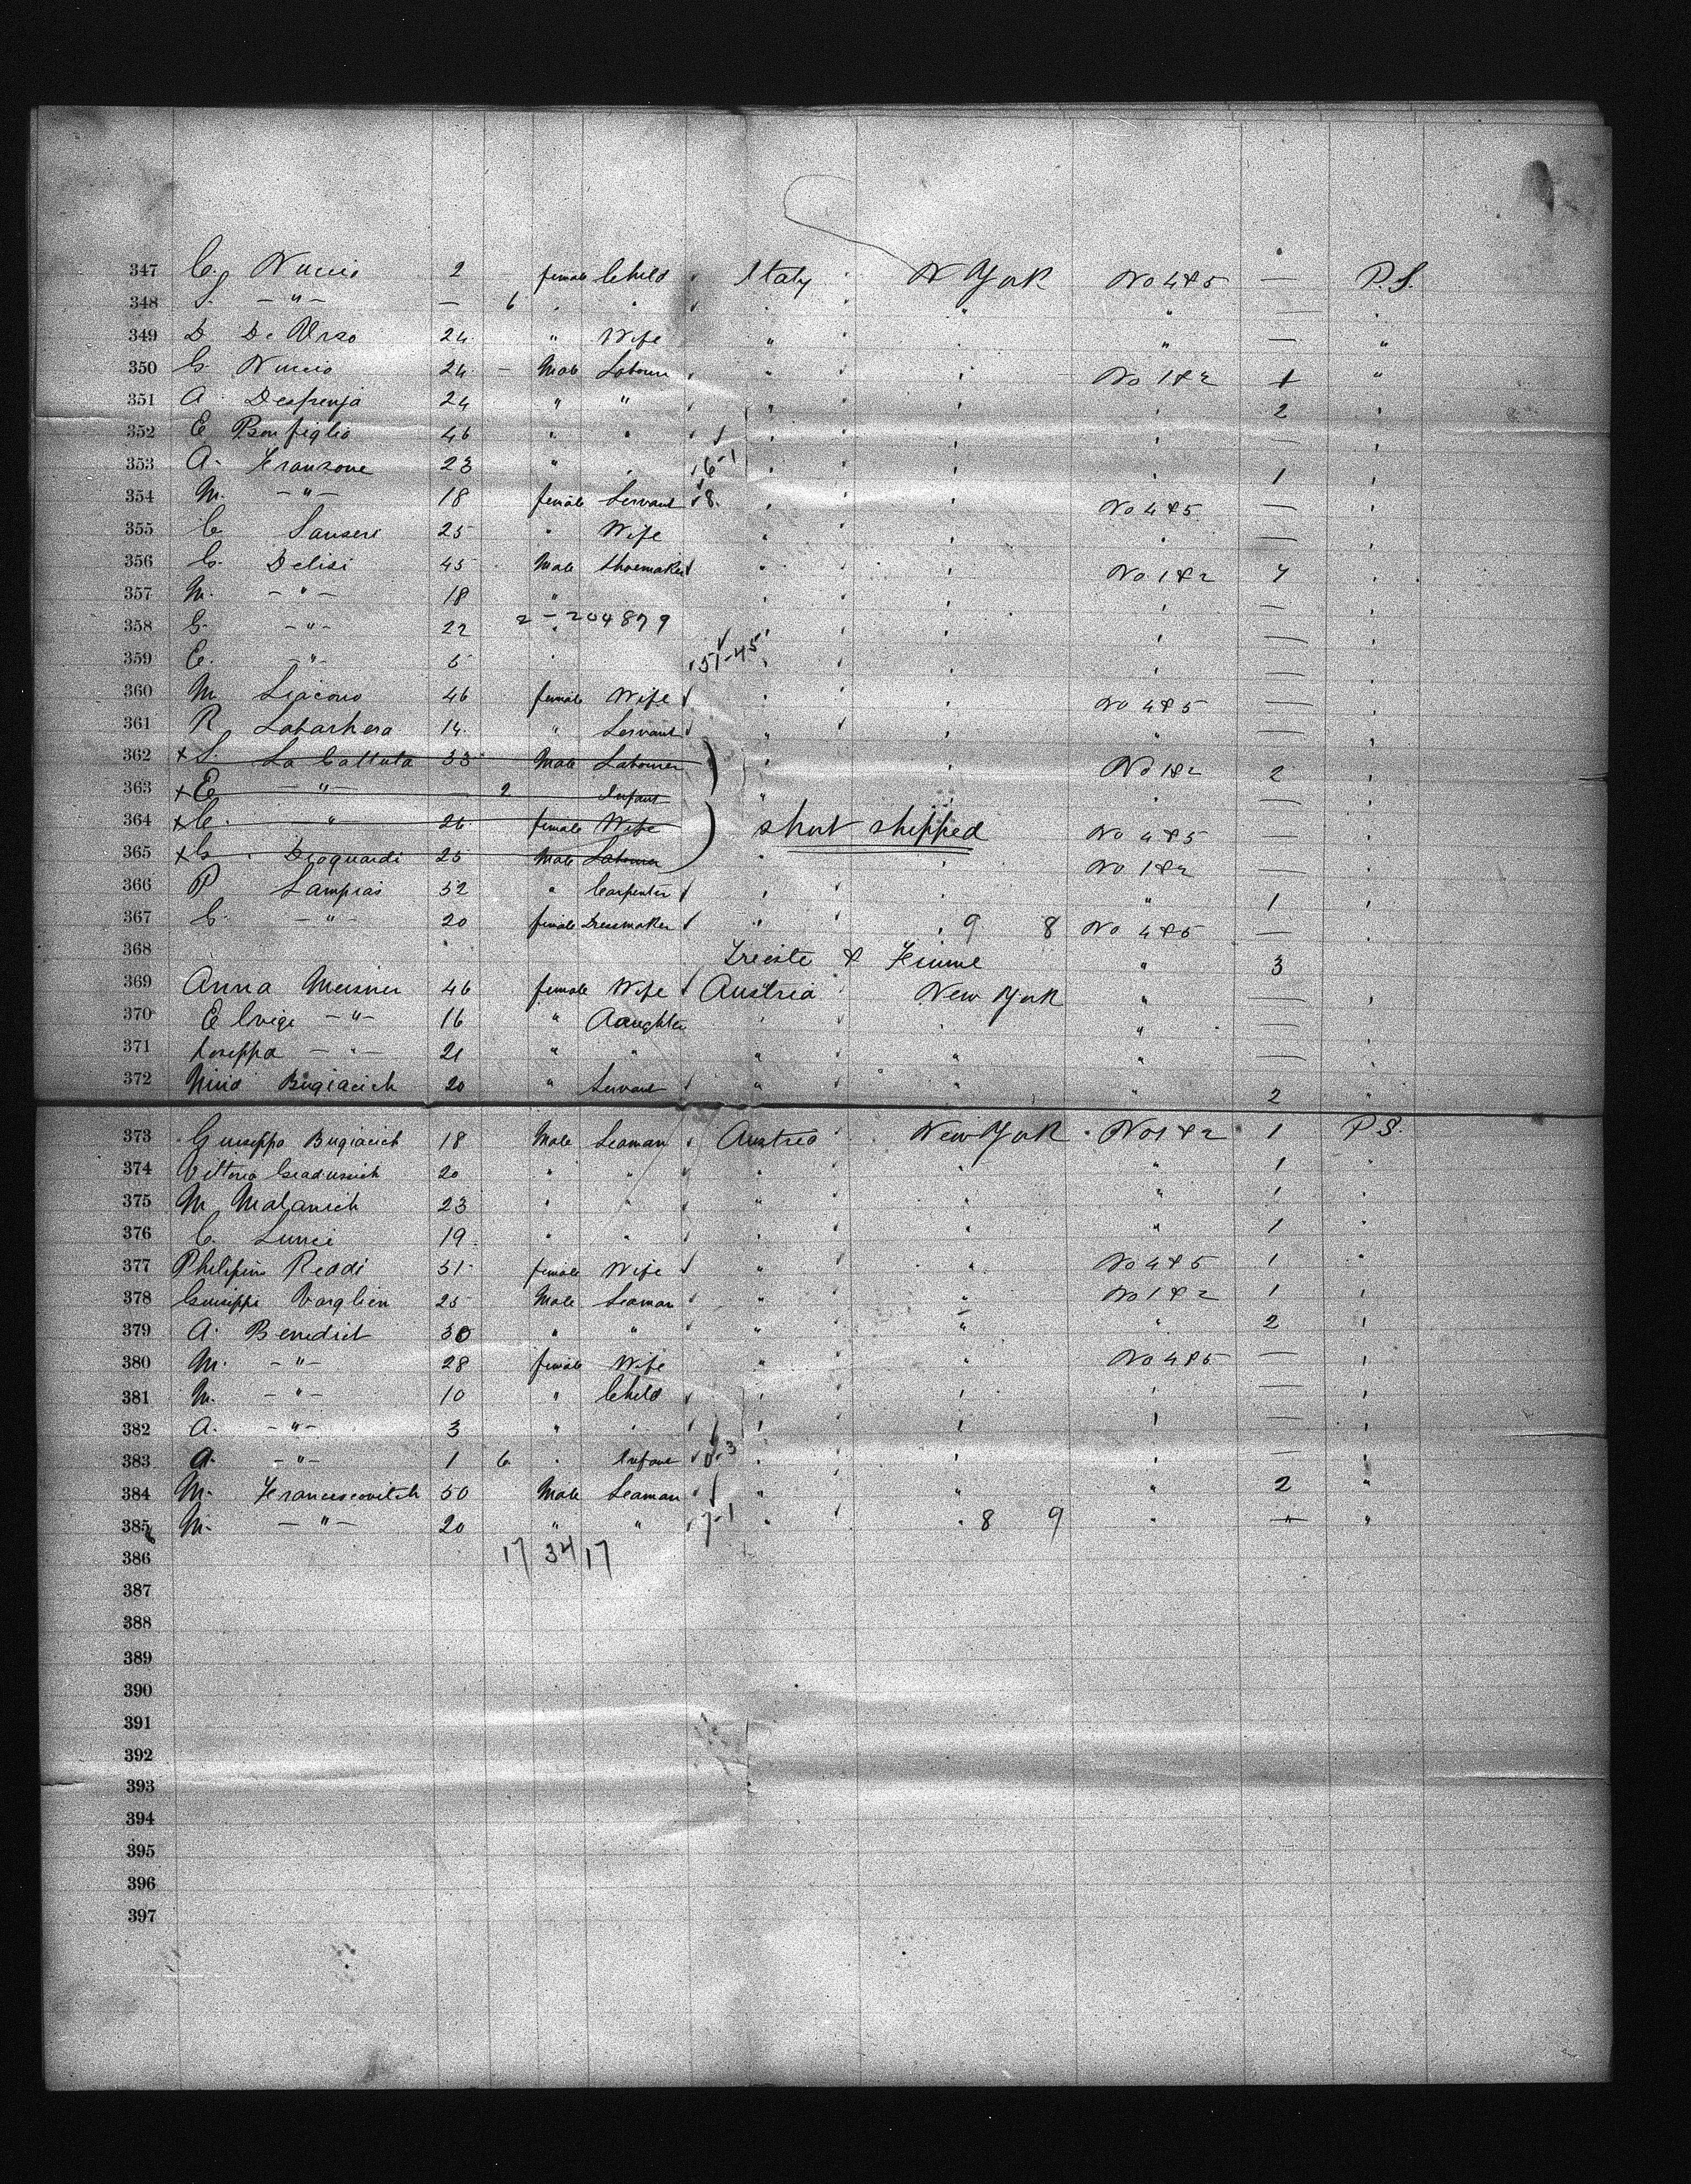 347 C. Nuccio 2 — female Child Italy N York No 4&5 — P.S.
348 S. — " — — 6 " " " " " — "
349 D De Urso 24 " Wife " " " — "
350 G Nuccio 24 — Male Labourer " " No 1&2 1 "
351 A. 24 " " " " " 2 "
352 E Bonfiglio 46 " " " " " — "
353 A. Franzone 23 " " 6-1 " " " 1 "
354 M. — " — 18 female Servant 8 " " No 4&5 — "
355 C Sanseri 25 " Wife " " " — "
356 C. Delisi 45 Male Shoemaker " " No 1&2 4 "
357 M. — " — 18 " " " " — "
358 G. — " — 22 2 - 204879 " " " — "
359 E. — " — 5 " 51-45 " " " — "
360 M Liacono 46 female Wife " " No 4&5 — "
361 R Labarbera 14 " Servant " " " — "
362 x S. La Cattuta 33 Male Labourer " " No 1&2 2 "
363 x E — " — — 2 Infant " " " — "
364 x C. — " — 26 female Wife short shipped No 4&5 — "
365 x G. 25 Male Labourer " " No 1&2 — "
366 P Lampias 52 " Carpenter " " " 1 "
367 C. — " — 20 female Dressmaker " " 9 8 No 4&5 — "
368 Trieste & Fiume " 3
369 Anna Meisner 46 female Wife Austria New York " — "
370 — " — 16 " Daughter " " " — "
371 Joseppa — " — 21 " " " " " — "
372 Nina Bugiacich 20 " Servant " " " 2 "
373 Guiseppo Bugiacich 18 Male Seaman Austria New York No 1&2 1 P.S.
374 Vittorio 20 " " " " " 1 "
375 M Malanich 23 " " " " " 1 "
376 C. 19 " " " " " 1 "
377 Philipin Reddi 31 female Wife " " No 4&5 1 "
378 Guiseppi Varglien 25 Male Seaman " " No 1&2 1 "
379 A. Benedict 30 " " " " " 2 "
380 M. — " — 28 female Wife " " No 4&5 — "
381 M. — " — 10 " Child " " " — "
382 A. — " — 3 " " " " " — "
383 A. — " — 1 6 " Infant " " " — "
384 M. Franciscovitch 50 Male Seaman " " " 2 "
385 M. — " — 20 " " 7-1 " " 8 9 " — "
386 17 34 17
387
388
389
390
391
392
393
394
395
396
397